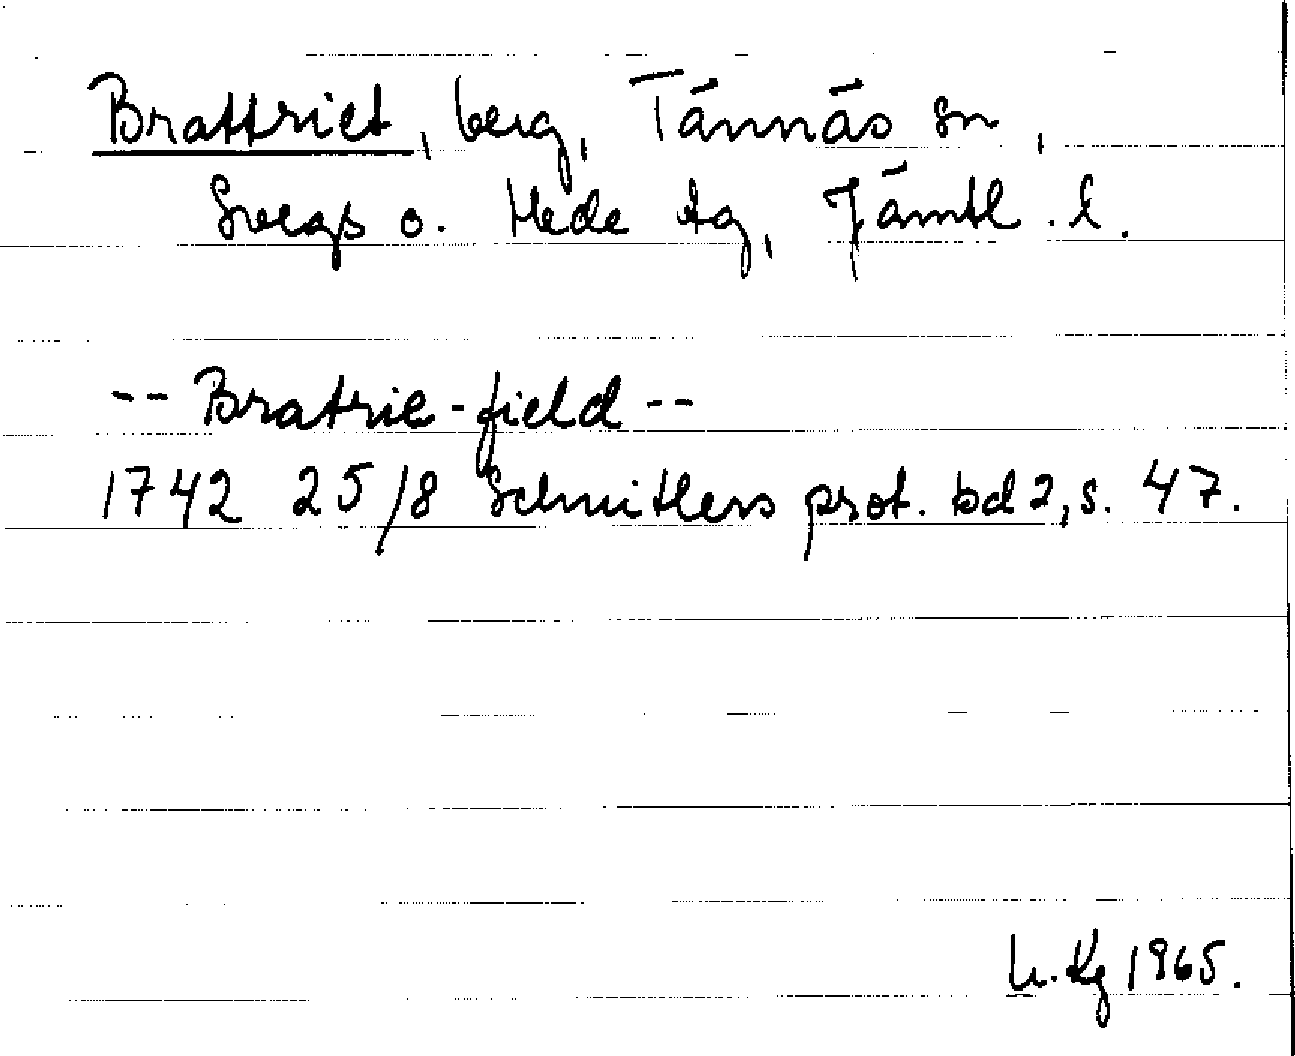 Brattriet, berg, Tännäs sn,
Svegs o. Hede tg, Jämtl. l.
-- Bratrie-field --
1742 25/8 Schnitlers prot. bd 2, s. 47.
Kg 1965.